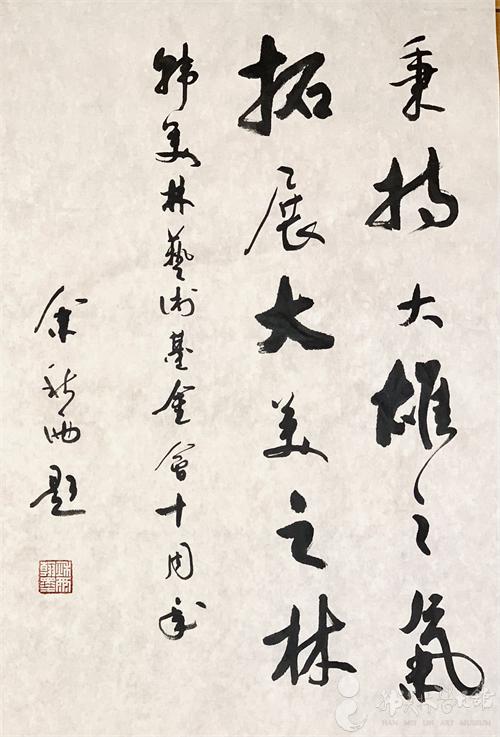 秉持大雄之氣
拓展大美之林
韩美林藝術基金會十周年
余秋雨題
韩美林艺术馆
HAN MEI LIN ART MUSEUM